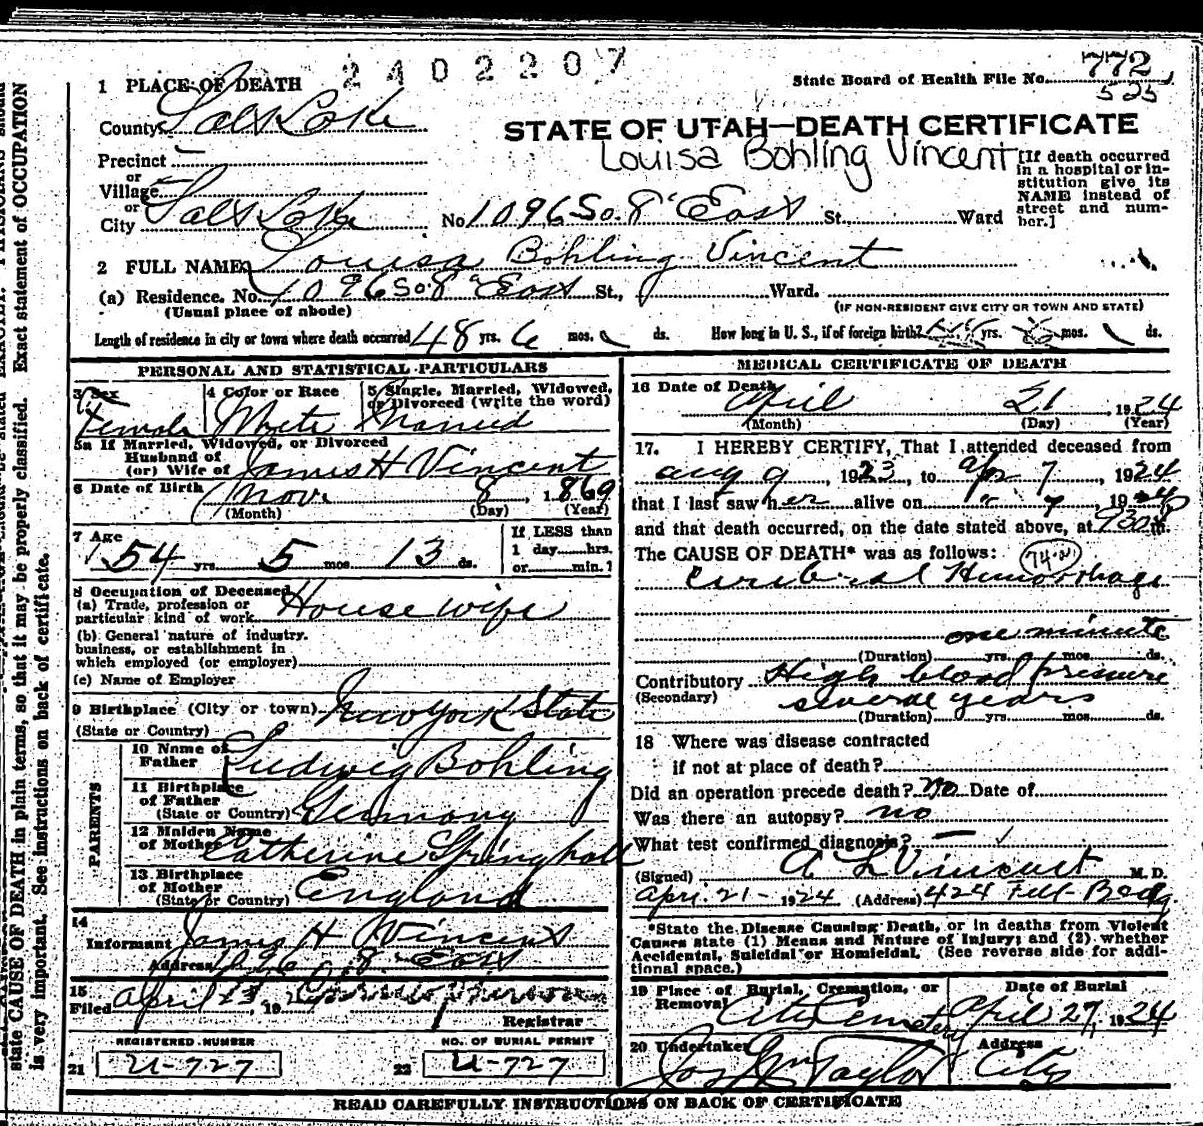 2402207
State Board of Health File No. 772
525
1 PLACE OF DEATH
County Salt Lake
STATE OF UTAH—DEATH CERTIFICATE
Louisa Bohling Vincent
Precinct
or
Village
or
City Salt Lake No. 1096 So. 8 East St. Ward
[If death occurred in a hospital or institution give its NAME instead of street and number.]
2 FULL NAME Louisa Bohling Vincent
(a) Residence. No. 1096 So. 8 East St., Ward.
(Usual place of abode)
(IF NON-RESIDENT GIVE CITY OR TOWN AND STATE)
Length of residence in city or town where death occurred 48 yrs. 6 mos. ds. How long in U. S., if of foreign birth? yrs. mos. ds.
PERSONAL AND STATISTICAL PARTICULARS
3 Sex Female
4 Color or Race White
5 Single, Married, Widowed, or Divorced (write the word) Married
5a If Married, Widowed, or Divorced
Husband of
(or) Wife of James H Vincent
6 Date of Birth Nov. 8, 1869
(Month) (Day) (Year)
7 Age 54 yrs. 5 mos. 13 ds.
If LESS than
1 day......hrs.
or......min.?
8 Occupation of Deceased
(a) Trade, profession or
particular kind of work House wife
(b) General nature of industry.
business, or establishment in
which employed (or employer)
(c) Name of Employer
9 Birthplace (City or town) New York State
(State or Country)
PARENTS
10 Name of
Father Ludwig Bohling
11 Birthplace
of Father
(State or Country) Germany
12 Maiden Name
of Mother Catherine Springhall
13 Birthplace
of Mother
(State or Country) England
14
Informant James H Vincent
Address 1096 So. 8 East
15
Filed April 23, 19
Registrar
REGISTERED NUMBER
21 U-727
NO. OF BURIAL PERMIT
22 U-727
MEDICAL CERTIFICATE OF DEATH
16 Date of Death April 21, 1924
(Month) (Day) (Year)
17. I HEREBY CERTIFY, That I attended deceased from
aug 9, 1923, to apr 7, 1924
that I last saw her alive on " 7, 1924
and that death occurred, on the date stated above, at 930 P m.
The CAUSE OF DEATH* was as follows:
Cerebral Hemorrhage
one minute
(Duration) yrs. mos. ds.
Contributory High blood pressure
(Secondary) several years
(Duration) yrs. mos. ds.
18 Where was disease contracted
if not at place of death?
Did an operation precede death? no Date of
Was there an autopsy? no
What test confirmed diagnosis? —
(Signed) A L Vincent M. D.
Apr. 21 - 1924 (Address) 424 Felt Bldg.
*State the Disease Causing Death, or in deaths from Violent
Causes state (1) Means and Nature of Injury; and (2) whether
Accidental, Suicidal or Homicidal. (See reverse side for additional space.)
19 Place of Burial, Cremation, or
Removal City Cemetery
Date of Burial
April 27, 1924
20 Undertaker Jos. Wm Taylor
Address
City
READ CAREFULLY INSTRUCTIONS ON BACK OF CERTIFICATE
state CAUSE OF DEATH in plain terms, so that it may be properly classified. Exact statement of OCCUPATION
is very important. See instructions on back of certificate.